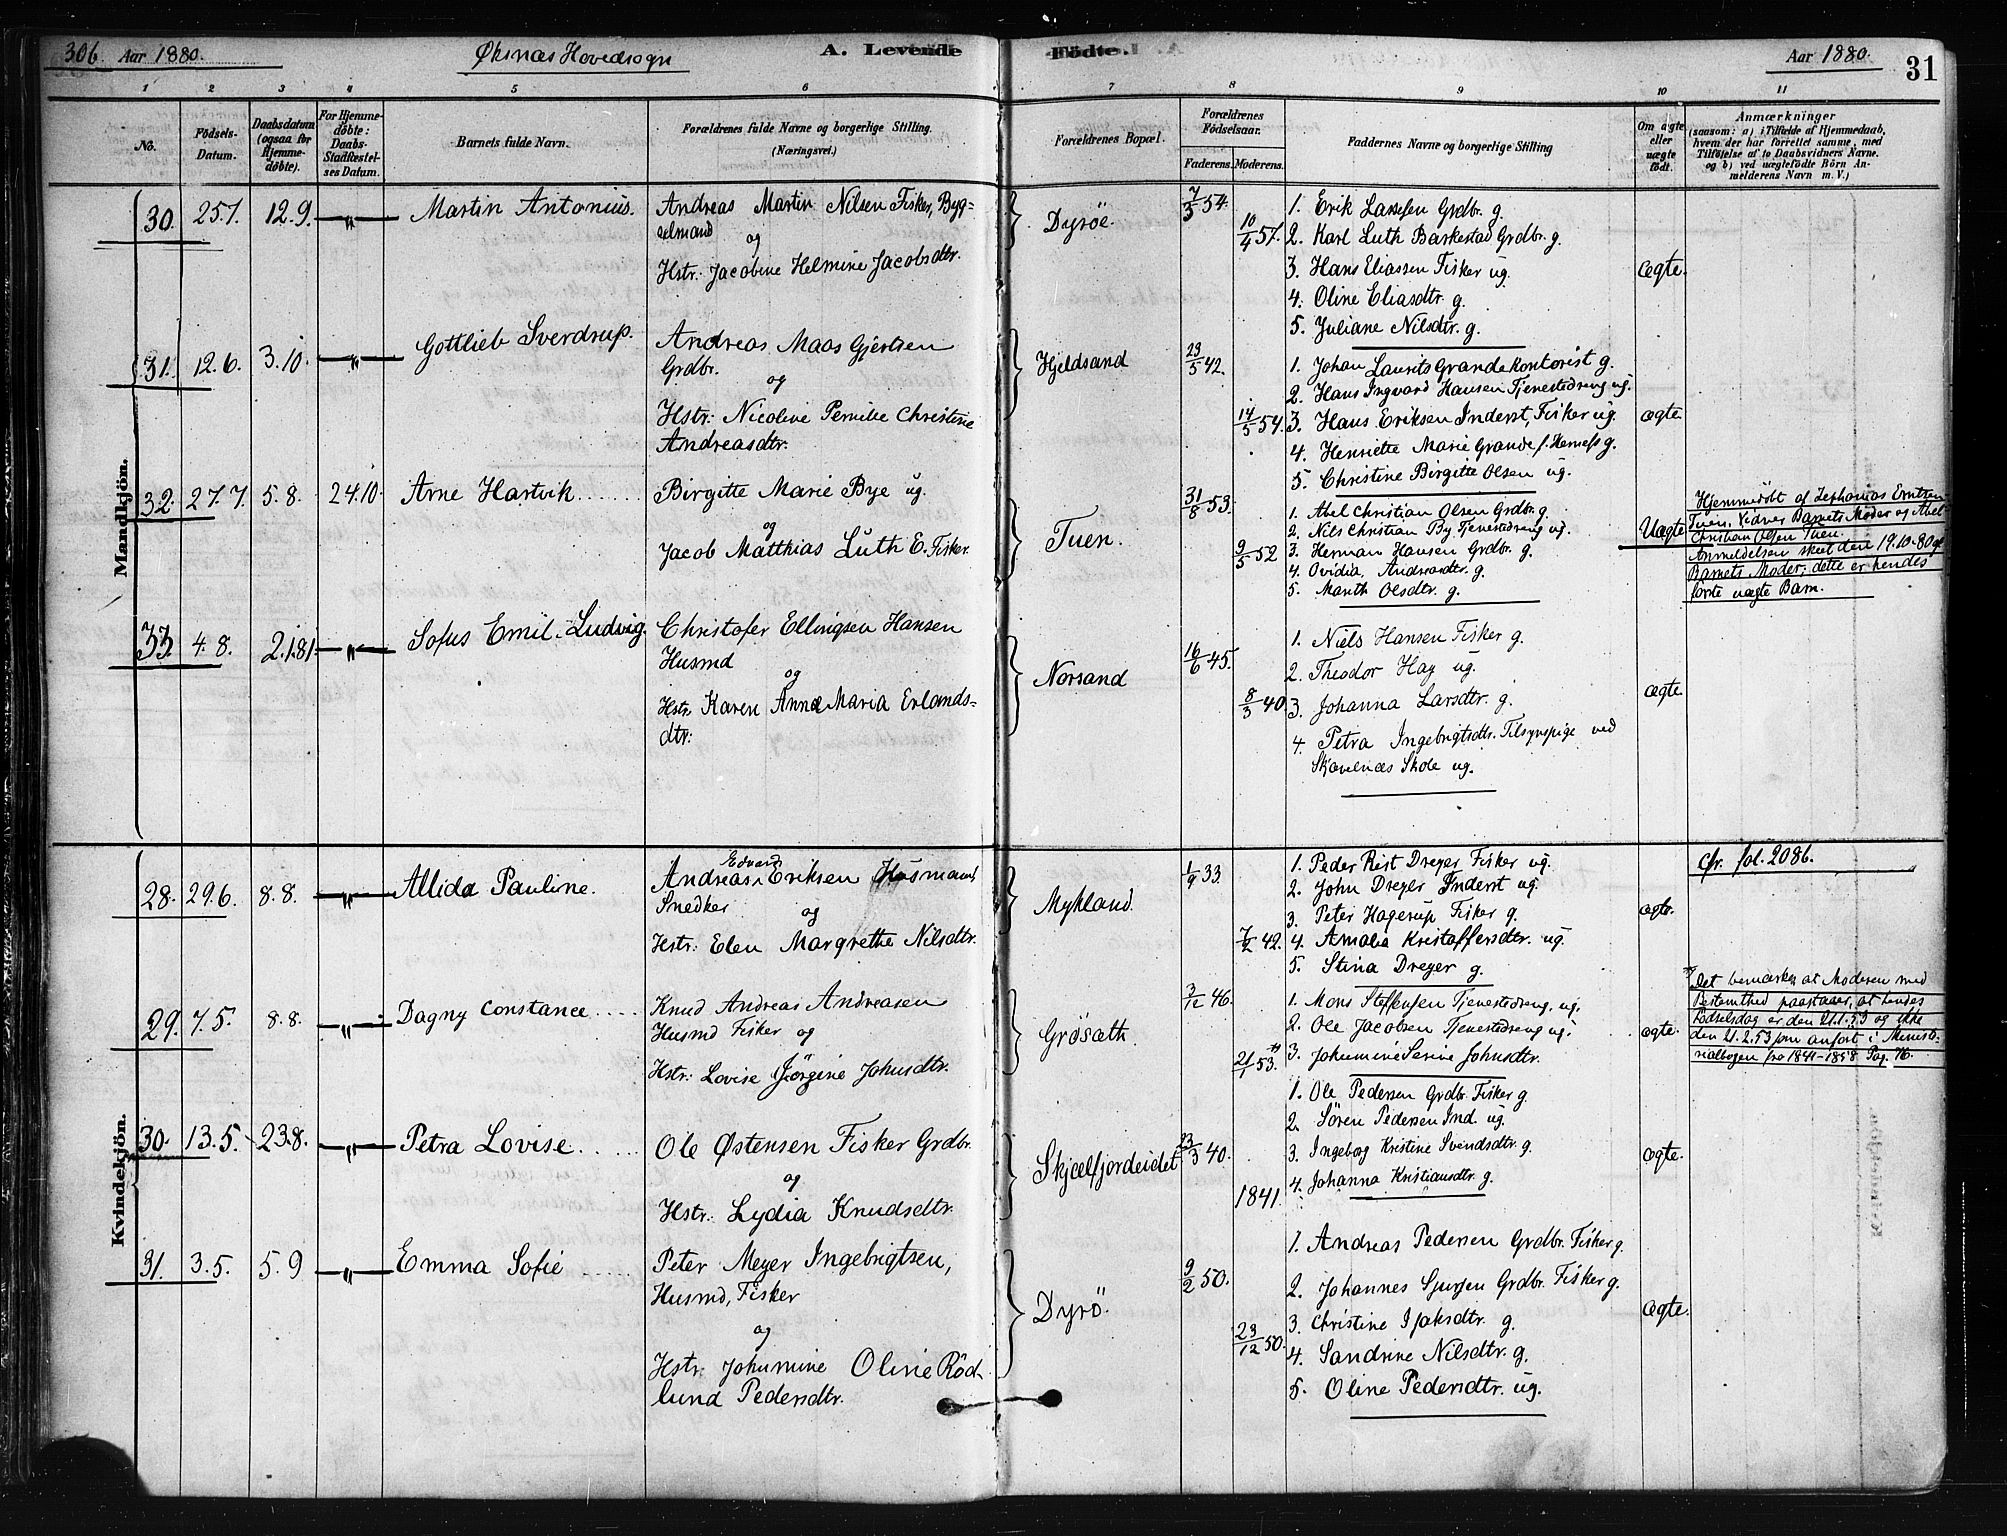 306. Aar 1880. Øksnæs Hovedsogn A. Levende
Fødte. Aar 1880. 31
1 2 3 4 5 6 7 8 9 10 11
No.
Fødsels-Datum.
Daabsdatum (ogsaa for Hjemmedøbte).
For Hjemmedøbte: Daabs-Stadfæstelses Datum.
Barnets fulde Navn.
Forældrenes fulde Navne og borgerlige Stilling.
(Næringsvei.)
Forældrenes Bopæl.
Forældrenes Fødselsaar.
Faderens. Moderens.
Faddernes Navne og borgerlige Stilling
Om ægte eller uægte født.
Anmærkninger
(saasom: a) i Tilfælde af Hjemmedaab,
hvem der har forrettet samme, med
Tilføielse af to Daabsvidners Navne.
og b) ved uægtefødte Børn An-
melderens Navn m. V.)
Mandkjön.
30. 25.7. 12.9. —„— Martin Antonius.
Andreas Martin Nilsen Fisker, Byg-
selmand
og
Hstr: Jacobine Helmine Jacobsdtr.
Dyröe.
7/3 54.
10/4 57.
1. Erik Lassesen Grdbr. g.
2. Karl Luth Barkestad Grdbr. g.
3. Hans Eliassen Fisker ug.
4. Oline Eliasdtr. g.
5. Juliane Nilsdtr. g.
ægte.
31. 12.6. 3.10. —„— Gottlieb Sverdrup.
Andreas Maas Gjertsen
Grdbr.
og
Hstr: Nicoline Pernille Christine
Andreasdtr.
Hjeldsand
29/5 42.
14/5 54.
1. Johan Laurits Grande Kontorist g.
2. Hans Ingvard Hansen Tjenestedreng ug.
3. Hans Eriksen Inderst, Fisker ug.
4. Henriette Marie Grande f. g.
5. Christine Birgitte Olsen ug.
ægte
32. 27.7. 5.8. 24.10. Arne Hartvik
Birgitte Marie Bye ug.
og
Jacob Matthias Luth E. Fisker
Tuen.
31/8 53.
9/5 52
1. Abel Christian Olsen Grdbr. g.
2. Nils Christian By Tjenestedreng ug.
3. Herman Hansen Grdbr. g.
4. Ovidia, Andreasdtr. g.
5. Marith Olsdtr. g.
Uægte
Hjemmedöbt af Zephanias Erntsen
Tuen. Vidner Barnets Moder og Abel
Christian Olsen Tuen.
Anmeldelsen skeet den 19.10-80 af
Barnets Moder; dette er hendes
förste uægte Barn.
33. 4.8. 2.1.81. —„— Sofus Emil Ludvig.
Christofer Ellingsen Hansen
Husmd
og
Hstr. Karen Anna Maria Erlands-
dtr:
Norsand
16/6 45.
8/3 40
1. Niels Hansen Fisker g.
2. Theodor Hay ug.
3. Johanna Larsdtr. g.
4. Petra Ingebrigtsdtr. Tilsynspige ved
Skavlnæs Skole ug.
ægte
Kvindekjön.
28. 29.6. 8.8. —„— Allida Pauline.
Edvard
Andreas Eriksen Husmand
Snedker
og
Hstr: Elen Margrethe Nilsdtr.
Mykland.
1/9 33.
7/2 42.
1. Peder Rist Dreyer Fisker ug.
2. John Dreyer Inderst ug.
3. Peter Hagerup Fisker g.
4. Amalia Kristoffersdtr. ug.
5. Stina Dreyer g.
ægte.
Cfr. fol. 2086.
29. 7.5. 8.8. —„— Dagny Constance
Knud Andreas Andreasen
Husmd Fisker og
Hstr: Lovise Jörgine Johnsdtr.
Grösæth
3/12 46.
21/1 53.
1. Mons Steffensen Tjenestedreng. ug.
2. Ole Jacobsen Tjenestedreng ug.
3. Johanmine Serine Johnsdtr.
ægte
Det bemærkes, at Moderen med
Bestemthed paastaaer, at hendes
Födselsdag er den 21.1.53 og ikke
den 21.2.53 som anfört i Ministe-
rialbogen fra 1841-1858 Pag. 76.
30. 13.5. 23.8. —„— Petra Lovise
Ole Østensen Fisker Grdbr.
og
Hstr: Lydia Knudsdtr.
Skjælfjordeidet
23/3 40.
1841.
1. Ole Pedersen Grdbr. Fisker g.
2. Sören Pedersen Ind. ug.
3. Ingeborg Kristine Svendsdtr. g.
4. Johanna Kristiansdtr. g.
ægte.
31. 3.5. 5.9 —„— Emma Sofie
Peter Meyer Ingebrigtsen,
Husmd, Fisker
og
Hstr: Johanmine Oline Röd-
lund Pedersdtr.
Dyrö.
9/2 50.
29/12 50.
1. Andreas Pedersen Grdbr. Fisker g.
2. Johannes Sjursen Grdbr. Fisker g.
3. Christine Isaksdtr. g.
4. Sandrine Nilsdtr. g.
5. Oline Pedersdtr. ug.
ægte.